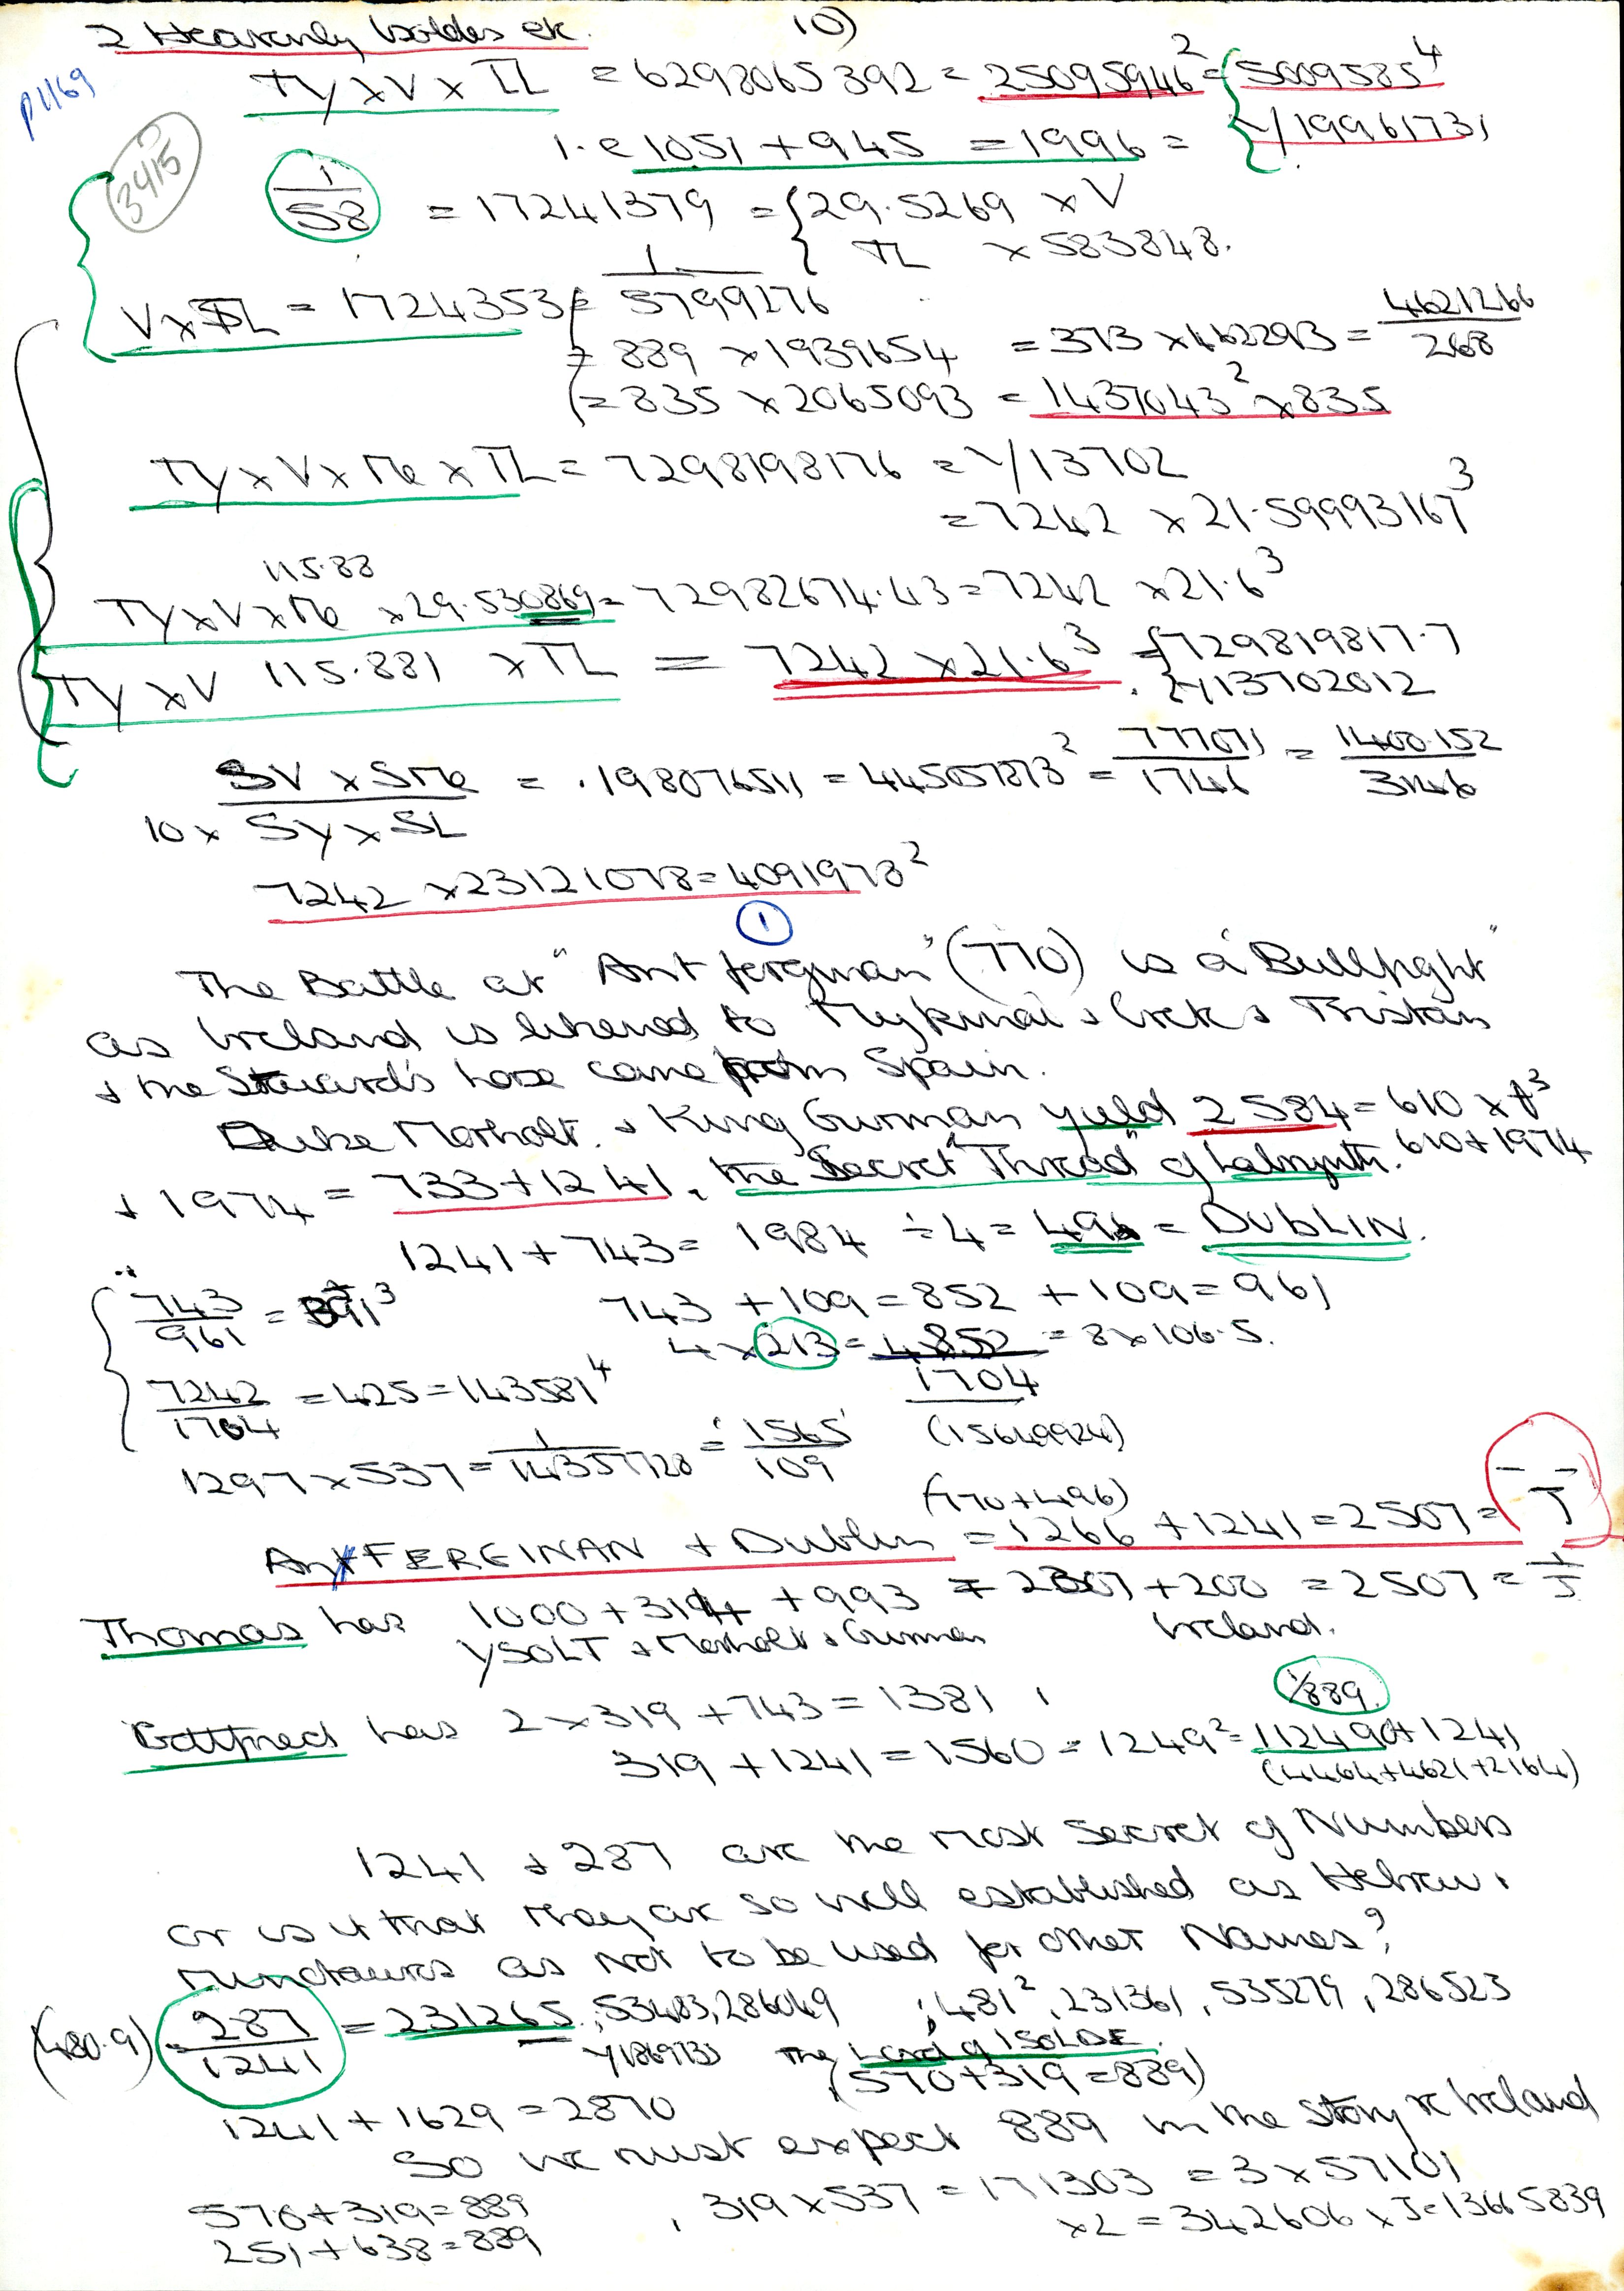 2 Heavenly Isoldes etc.
10)
p1169
3415
TY x V x TL = 6298065392 = 25095946² = { 5009585⁴
i.e 1051 + 945 = 1996 = √19961731
1/58 = 17241379 = { 29.5269 x V
TL x 583848.
V x TL = 17243536 = 1/5799276
= 889 x 1939654 = 373 x 462293 = 4621266/268
= 835 x 2065093 = 1437043² x 835
TY x V x Me x TL = 7298198176 = √13702
= 7242 x 21.59993167³
115.88
TY x V x Me x 29.530869 = 72982674.43 = 7242 x 21.6³
TY x V 115.881 x TL = 7242 x 21.6³ = { 729819817.7
√13702012
SV x SMe / 10 x SY x SL = .198076511 = 445057873² = 777071/1746 = 1400.152/3146
7242 x 23121078 = 4091978²
1
The Battle at "Ant ferginan" (770) is a "Bullfight"
as Ireland is likened to Mykinai & Crete & Tristan
& the Steward's have come from Spain.
Duke Morholt. & King Gurman yield 2584 = 610 x t³
610 + 1974
& 1974 = 733 + 1241, the Secret "Thread" of Labrynth.
1241 + 743 = 1984 ÷ 4 = 496 = DUBLIN.
743/961 = 391³
743 + 109 = 852 + 109 = 961
4 x 213 = 4852 = 8 x 106.5.
1704
7242/1704 = 425 = 143581⁴
(15649924)
1297 x 537 = 1/14357728 = 1565/109
(770 + 496)
AntFERGINAN + Dublin = 1266 + 1241 = 2507 = J
Thomas has 1000 + 314 + 993 = 2307 + 200 = 2507 = 1/J
YSOLT & Morholt & Gurman Ireland.
Gottfried has 2 x 319 + 743 = 1381,
1/889.
319 + 1241 = 1560 = 1249² = 112490 + 1241
(4464 + 4621 + 2164)
1241 & 287 are the most Secret of Numbers
or is it that they are so well established as Hebrew,
Minotaurs as not to be used for other Names?
(480.9) 287/1241 = 231265, 53483, 286049 ; 481², 231361, 535279, 286523
√1869733 The Land of ISOLDE.
(570 + 319 = 889)
1241 + 1629 = 2870
So we must expect 889 in the Story re Ireland
570 + 319 = 889 , 319 x 537 = 171303 = 3 x 57101
251 + 638 = 889 x 2 = 342606 x J = 13665839